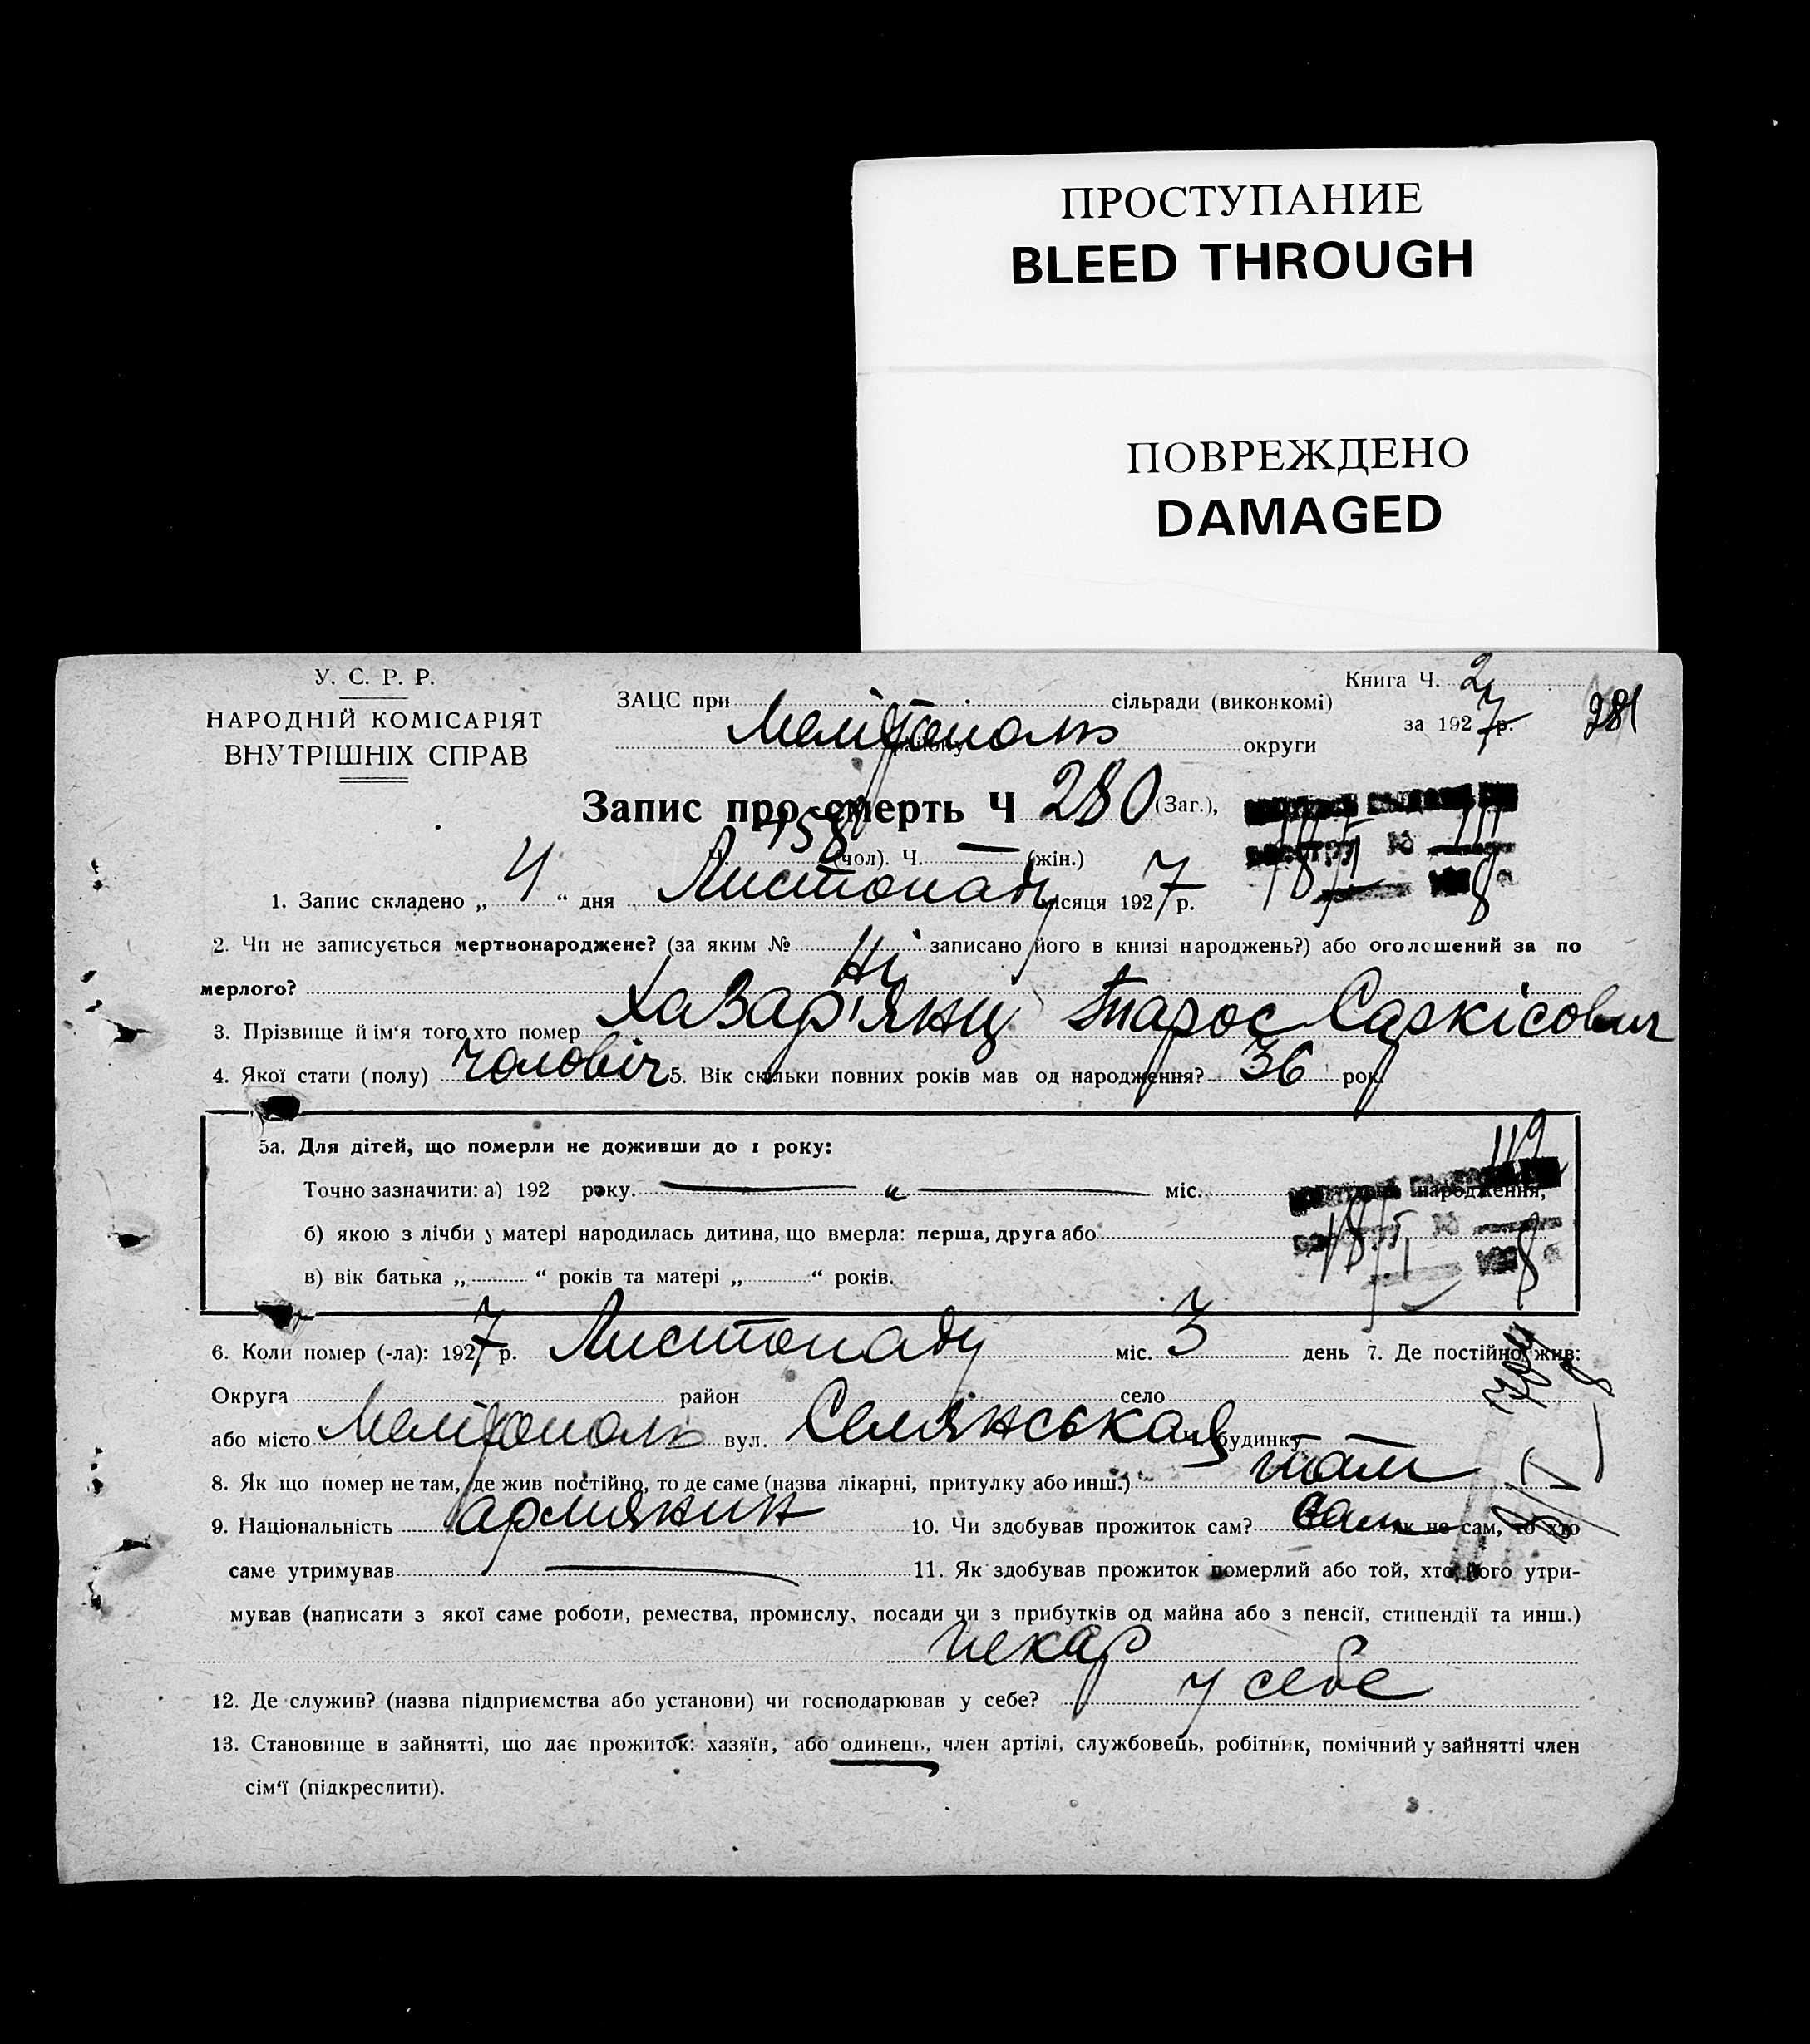 ПРОСТУПАНИЕ
BLEED THROUGH
ПОВРЕЖДЕНО
DAMAGED
У. С. Р. Р.
НАРОДНІЙ КОМІСАРІЯТ
ВНУТРІШНІХ СПРАВ
Книга Ч. 2
за 1927 р. 281
ЗАЦС при сільради (виконкомі)
Мелітополь району округи
Запис про смерть Ч 280 (Заг.),
Ч. 158 (чол). Ч. — (жін.)
1. Запис складено „ 4 “ дня Листопаду місяця 1927 р.
2. Чи не записується мертвонароджене? (за яким № записано його в книзі народжень?) або оголошений за по
мерлого? Ні
3. Прізвище й ім‘я того хто помер Хазар'янц Тарос Саркісович
4. Якої стати (полу) чоловіч 5. Вік скільки повних років мав од народження? 36 рок.
5а. Для дітей, що померли не доживши до 1 року:
Точно зазначити: а) 192 року. — „ — міс. народження,
б) якою з лічби у матері народилась дитина, що вмерла: перша, друга або
в) вік батька „ “ років та матері „ “ років.
119
18/I 8
6. Коли помер (-ла): 1927 р. Листопаду міс. 3 день 7. Де постійно жив:
Округа район село
або місто Мелітополь вул. Селянська 8 ч. будинку
8. Як що помер не там, де жив постійно, то де саме (назва лікарні, притулку або инш.) там
9. Національність армянин 10. Чи здобував прожиток сам? Сам як не сам, то хто
саме утримував — 11. Як здобував прожиток померлий або той, хто його утри-
мував (написати з якої саме роботи, ремества, промислу, посади чи з прибутків од майна або з пенсії, стипендії та инш.)
пекар
12. Де служив? (назва підприємства або установи) чи господарював у себе? у себе
13. Становище в зайнятті, що дає прожиток: хазяїн, або одинець, член артілі, службовець, робітник, помічний у зайнятті член
сім‘ї (підкреслити).